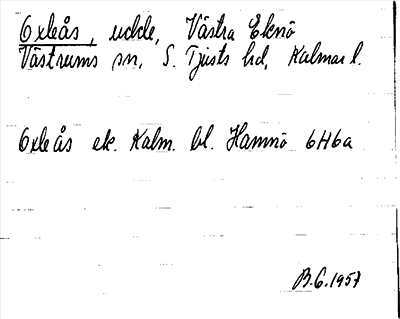 Oxleås, udde, Västra Eknö
Västrums sn, S. Tjusts hd, Kalmar l.
Oxleås ek. Kalm. bl. Hamnö 6H6a
B.G.1957